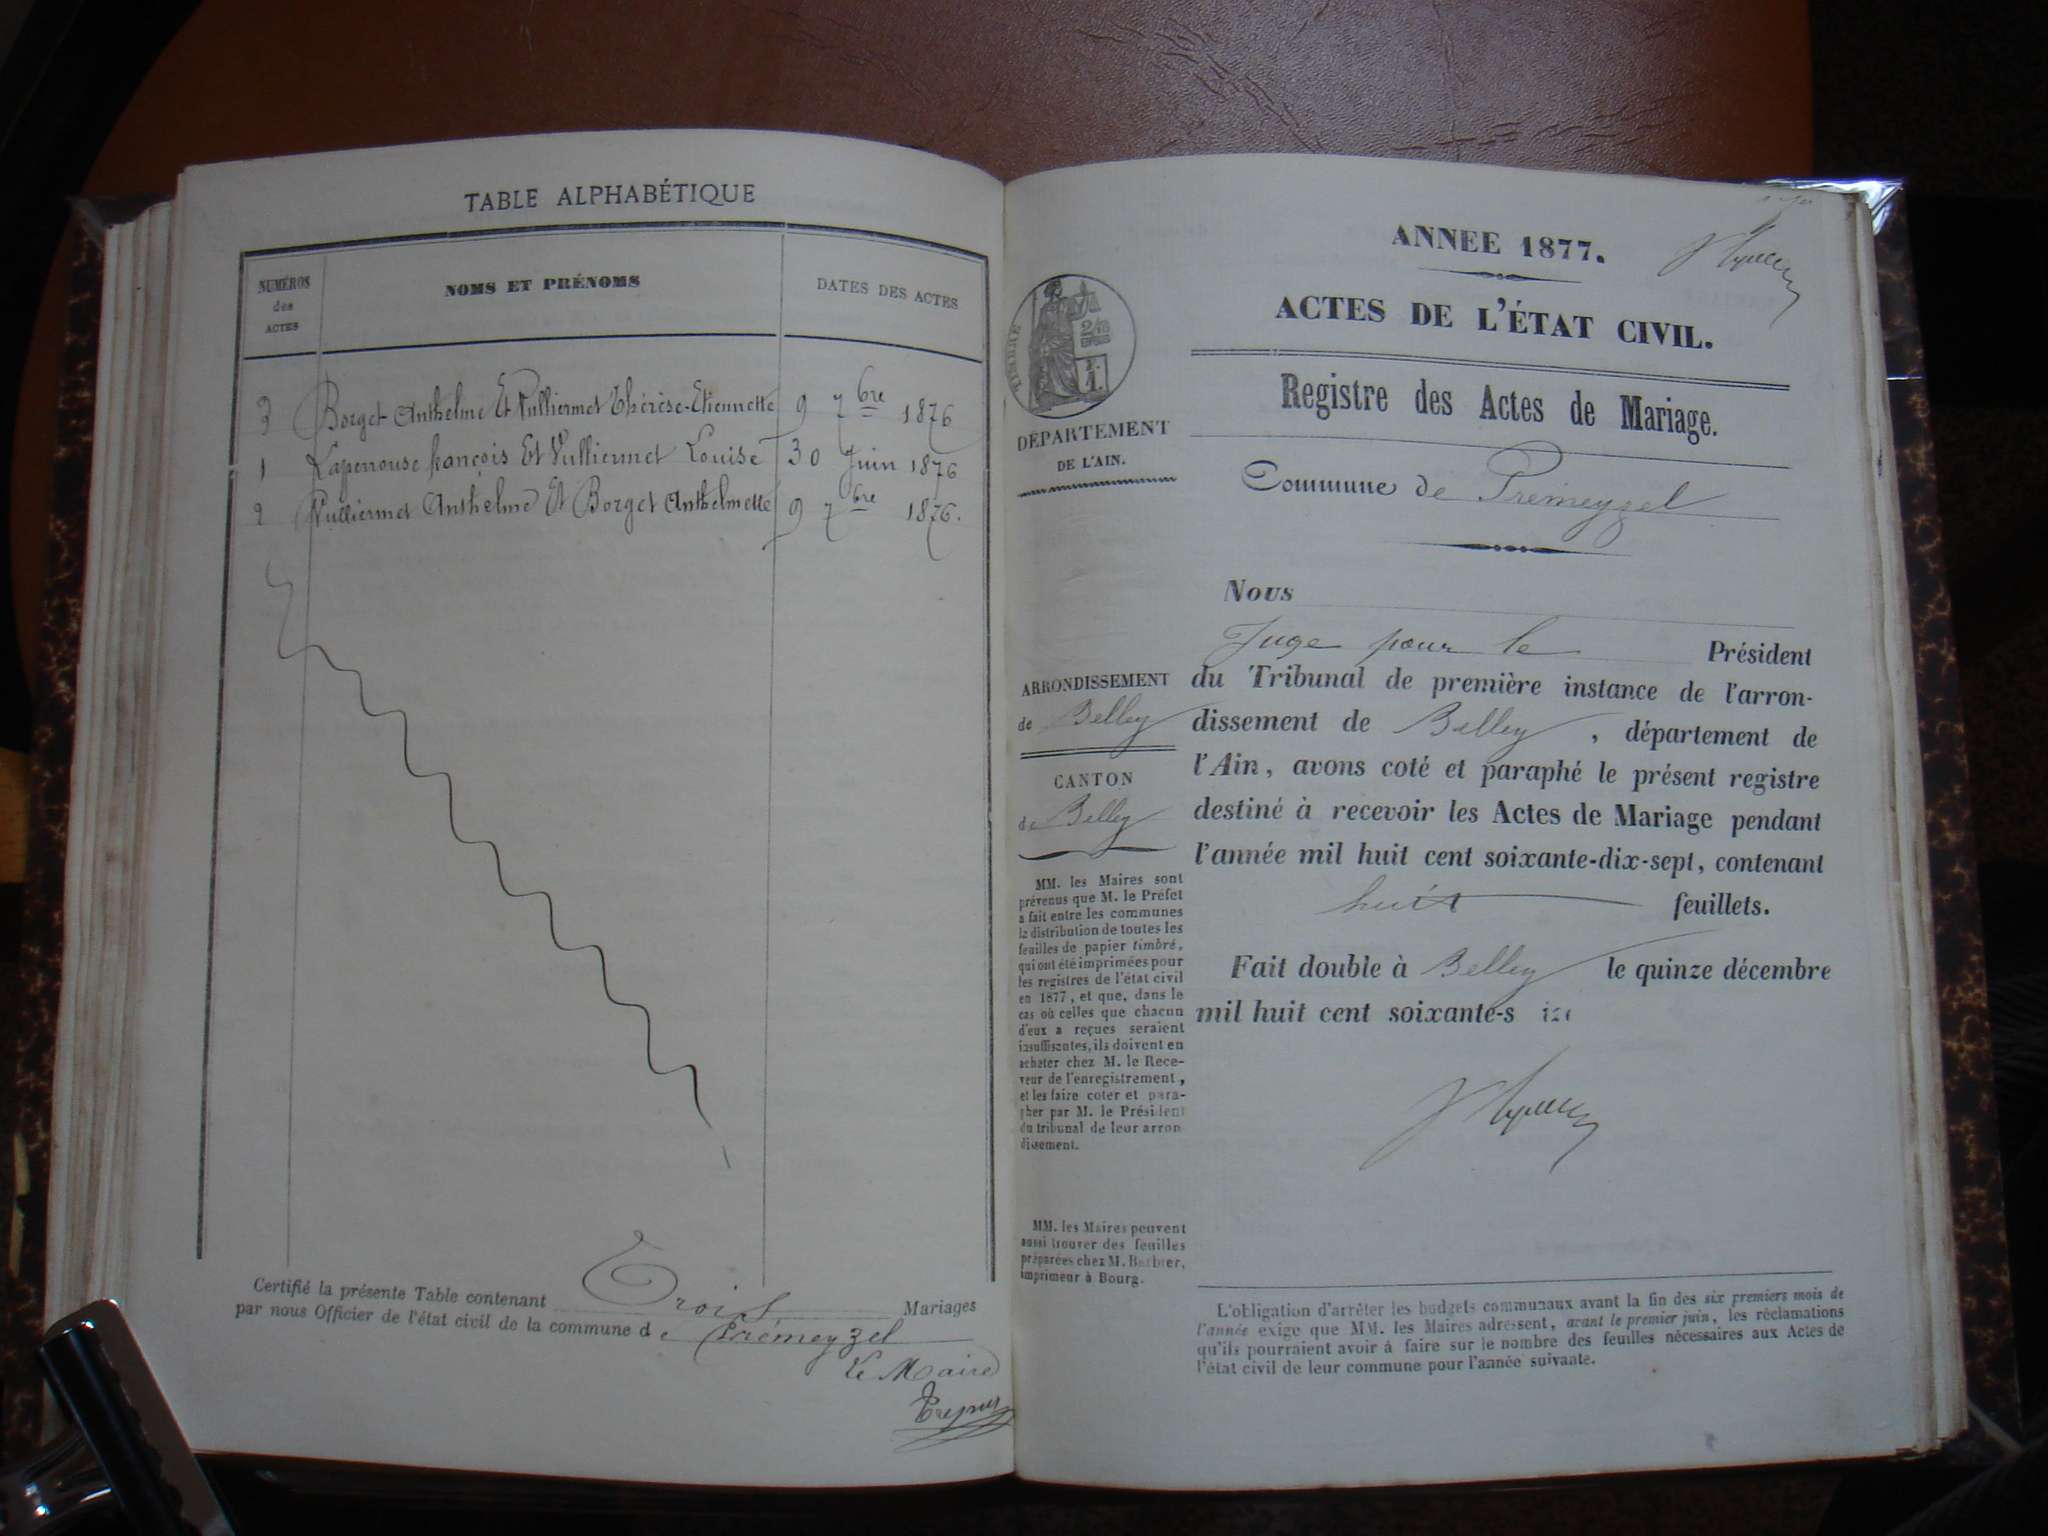 TABLE ALPHABÉTIQUE
NUMÉROS
des
ACTES
NOMS ET PRÉNOMS
DATES DES ACTES
3 Borget Anthelme Et Vulliermet Thérèse-Etiennette 9 7bre 1876
1 Lapenouse françois Et Vulliermet Louise 30 Juin 1876
2 Vulliermet Anthelme Et Borget Anthelmette 9 7bre 1876.
Certifié la présente Table contenant Trois Mariages
par nous Officier de l'état civil de la commune de Prémeyzel
Le Maire
ANNEE 1877.
ACTES DE L'ÉTAT CIVIL.
Registre des Actes de Mariage.
Commune de Prémeyzel
TIMBRE
DÉPARTEMENT
DE L'AIN.
ARRONDISSEMENT
de Belley
CANTON
de Belley
MM. les Maires sont
prévenus que M. le Préfet
a fait entre les communes
la distribution de toutes les
feuilles de papier timbré,
qui ont été imprimées pour
les registres de l'état civil
en 1877, et que, dans le
cas où celles que chacun
d'eux a reçues seraient
insuffisantes, ils doivent en
acheter chez M. le Rece-
veur de l'enregistrement,
et les faire coter et para-
pher par M. le Président
du tribunal de leur arron
dissement.
MM. les Maires peuvent
aussi trouver des feuilles
préparées chez M. Barbier,
imprimeur à Bourg.
Nous
Juge pour le Président
du Tribunal de première instance de l'arron-
dissement de Belley, département de
l'Ain, avons coté et paraphé le présent registre
destiné à recevoir les Actes de Mariage pendant
l'année mil huit cent soixante-dix-sept, contenant
huit feuillets.
Fait double à Belley le quinze décembre
mil huit cent soixante-s
L'obligation d'arrêter les budgets communaux avant la fin des six premiers mois de
l'année exige que MM. les Maires adressent, avant le premier juin, les réclamations
qu'ils pourraient avoir à faire sur le nombre des feuilles nécessaires aux Actes de
l'état civil de leur commune pour l'année suivante.